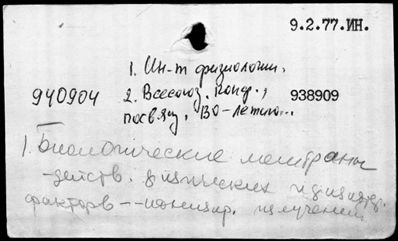 9.2.77.ИН.
1. Ин-т физиологии.
940904 2. Всесоюз. конф., 938909
посвящ. 80-летию...
1. Биологические мембраны
- действ. физических
факторов -- ионизир. излучений